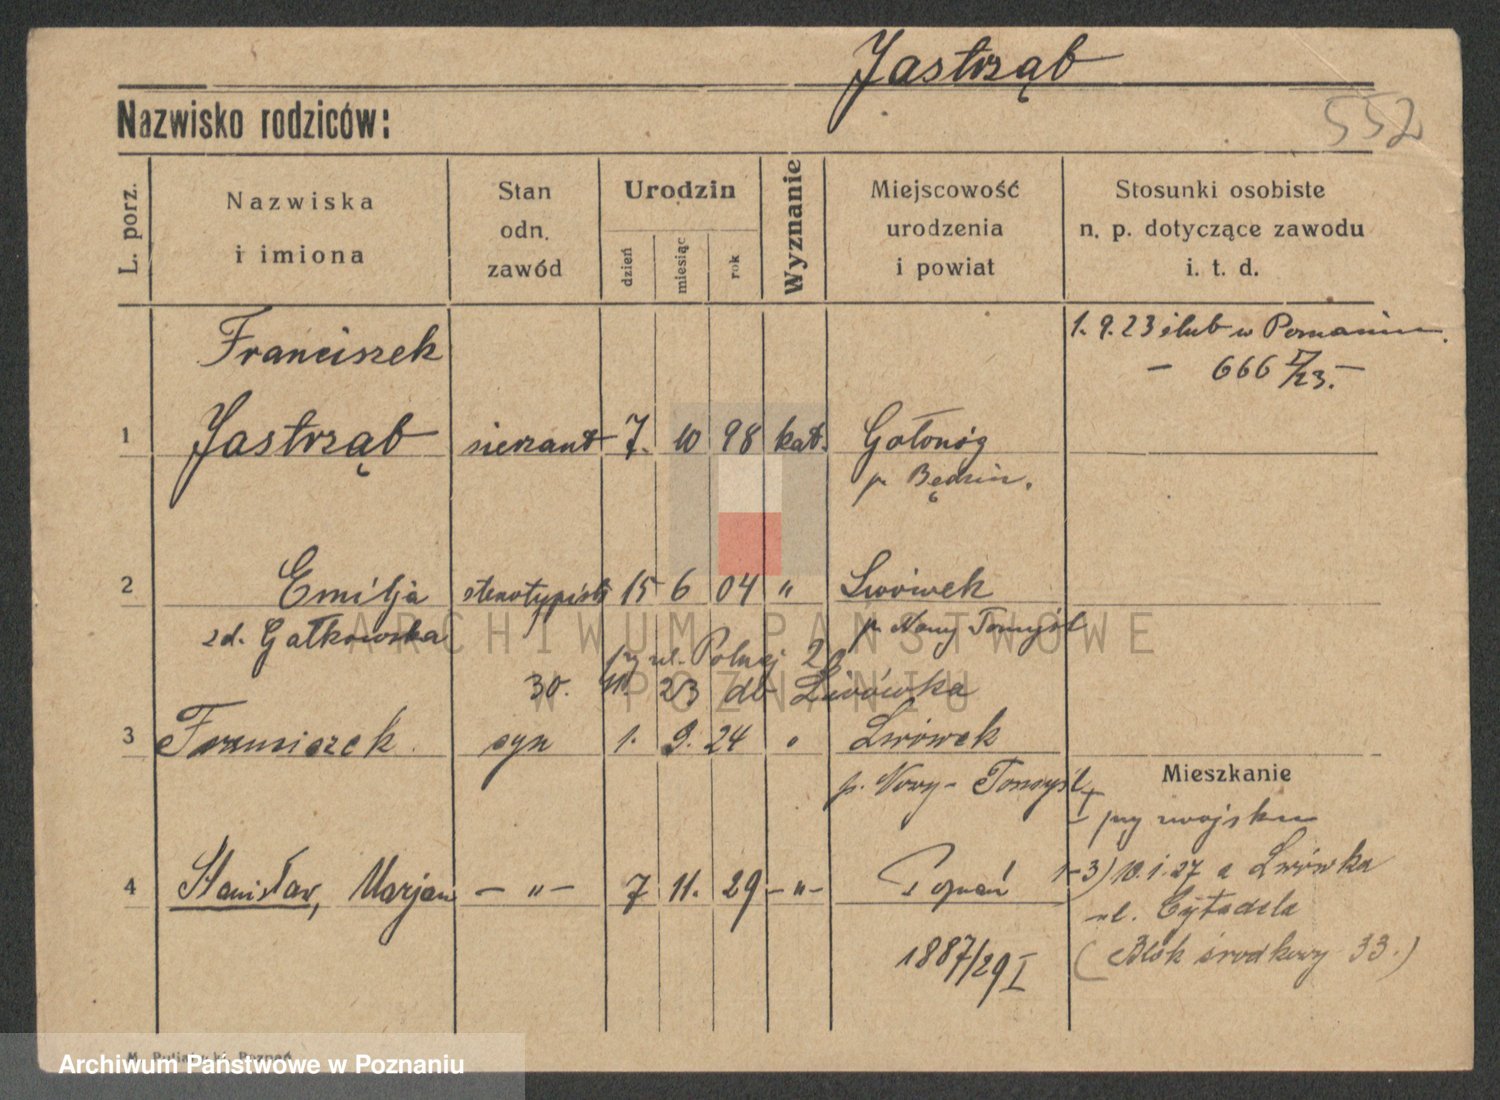 Jastrząb
552
Nazwisko rodziców:
L. porz.
Nazwiska
i imiona
Stan
odn.
zawód
Urodzin
dzień
miesiąc
rok
Wyznanie
Miejscowość
urodzenia
i powiat
Stosunki osobiste
n. p. dotyczące zawodu
i. t. d.
1. 9. 23 ślub w Poznaniu.
— 666 /23. —
Franciszek
1 Jastrząb sierżant 7. 10 98 kat. Gołonóg
p. Będzin.
2 Emilja stenotypistk 15 6 04 " Lwówek
zd. Gałkowska p. Nowy Tomyśl
ARCHIWUM PAŃSTWOWE
przy ul. Polnej 2
30. 11. 23 do Lwówka
W POZNANIU
3 Franciszek. syn 1. 9. 24 " Lwówek
p. Nowy-Tomyśl
Mieszkanie
przy wojsku
4 Stanisław, Marjan — " — 7 11. 29 — " — Poznań
1-3) 10. 1. 27 z Lwówka
ul. Cytadela
(Blok środkowy 33.)
1887/29 I
M. Putiatycki, Poznań
Archiwum Państwowe w Poznaniu